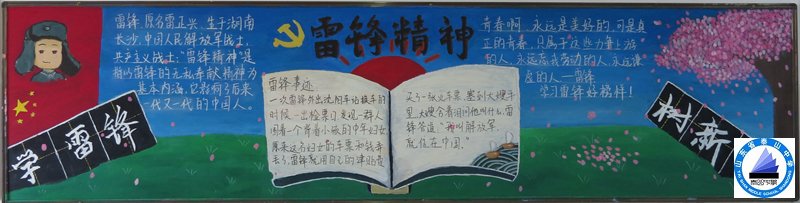 雷锋,原名雷正兴,生于湖南
长沙,中国人民解放军战士,
共产主义战士;“雷锋精神”是
指以雷锋的无私奉献精神为
基本内涵,它影响了后来
一代又一代的中国人。
学雷锋
雷锋精神
雷锋事迹
一次雷锋外出沈阳车站换车的
时候,一出检票口发现一群人
围着一个背着小孩的中年妇女
原来这个妇女的车票和钱弄
丢了,雷锋就用自己的津贴费
买了一张火车票,塞到大嫂手
里,大嫂含着泪问他叫什么,雷
锋答道:“我叫解放军,
就住在中国。”
青春啊,永远是美好的,可是真
正的青春,只属于这些力争上游
的人,永远忘我劳动的人,永远谦
虚的人—雷锋
学习雷锋好榜样!
树新
山东省泰山中学